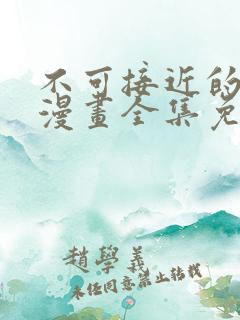 不可接近的
漫畫全集免
趙學義
未经同意禁止转载